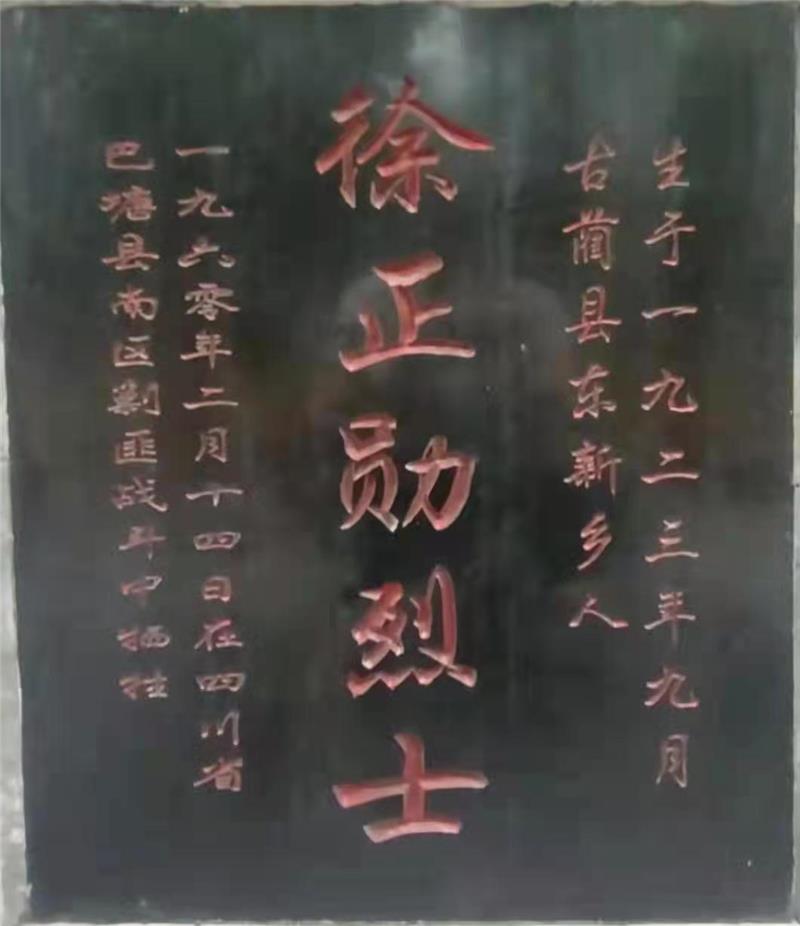 生于一九二三年九月
古蔺县东新乡人
徐正勋烈士
一九六零年二月十四日在四川省
巴塘县南区剿匪战斗中牺牲